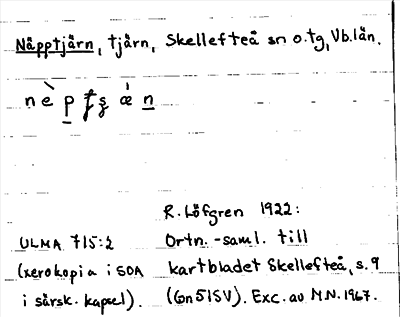 Näpptjärn, tjärn, Skellefteå sn o. tg, Vb. län.
ULMA 715:2
(xerokopia i SOA
i särsk. kapsel).
R. Löfgren 1922:
Ortn.-saml. till
kartbladet Skellefteå, s. 9
(Gn 51SV). Exc. av M.N. 1967.